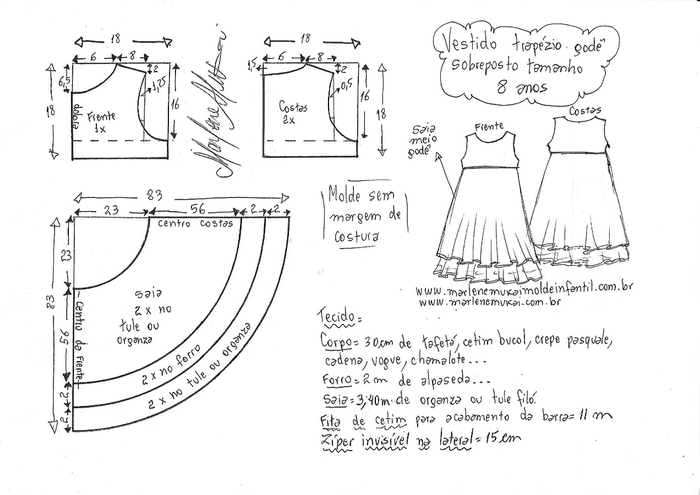 Vestido trapézio godê
sobreposto tamanho
8 anos
18
6
8
2
6,5
1,25
18
16
dobra
Frente
1x
18
6
8
1,5
2
0,5
16
18
Costas
2x
Saia
meio
godê
Frente
Costas
Molde sem
margem de
costura
83
23
56
2
2
centro costas
83
23
56
2
2
Centro da Frente
saia
2x no
tule ou
organza
2x no forro
2x no tule ou organza
www.marlenemukaimoldeinfantil.com.br
www.marlenemukai.com.br
Tecido=
Corpo= 30cm de tafetá, cetim bucol, crepe pasquale,
cadena, vogue, chamalote...
Forro= 2m de alpaseda...
Saia= 3,40m de organza ou tule filó.
Fita de cetim para acabamento da barra= 11 m
Zíper invisível na lateral= 15 cm